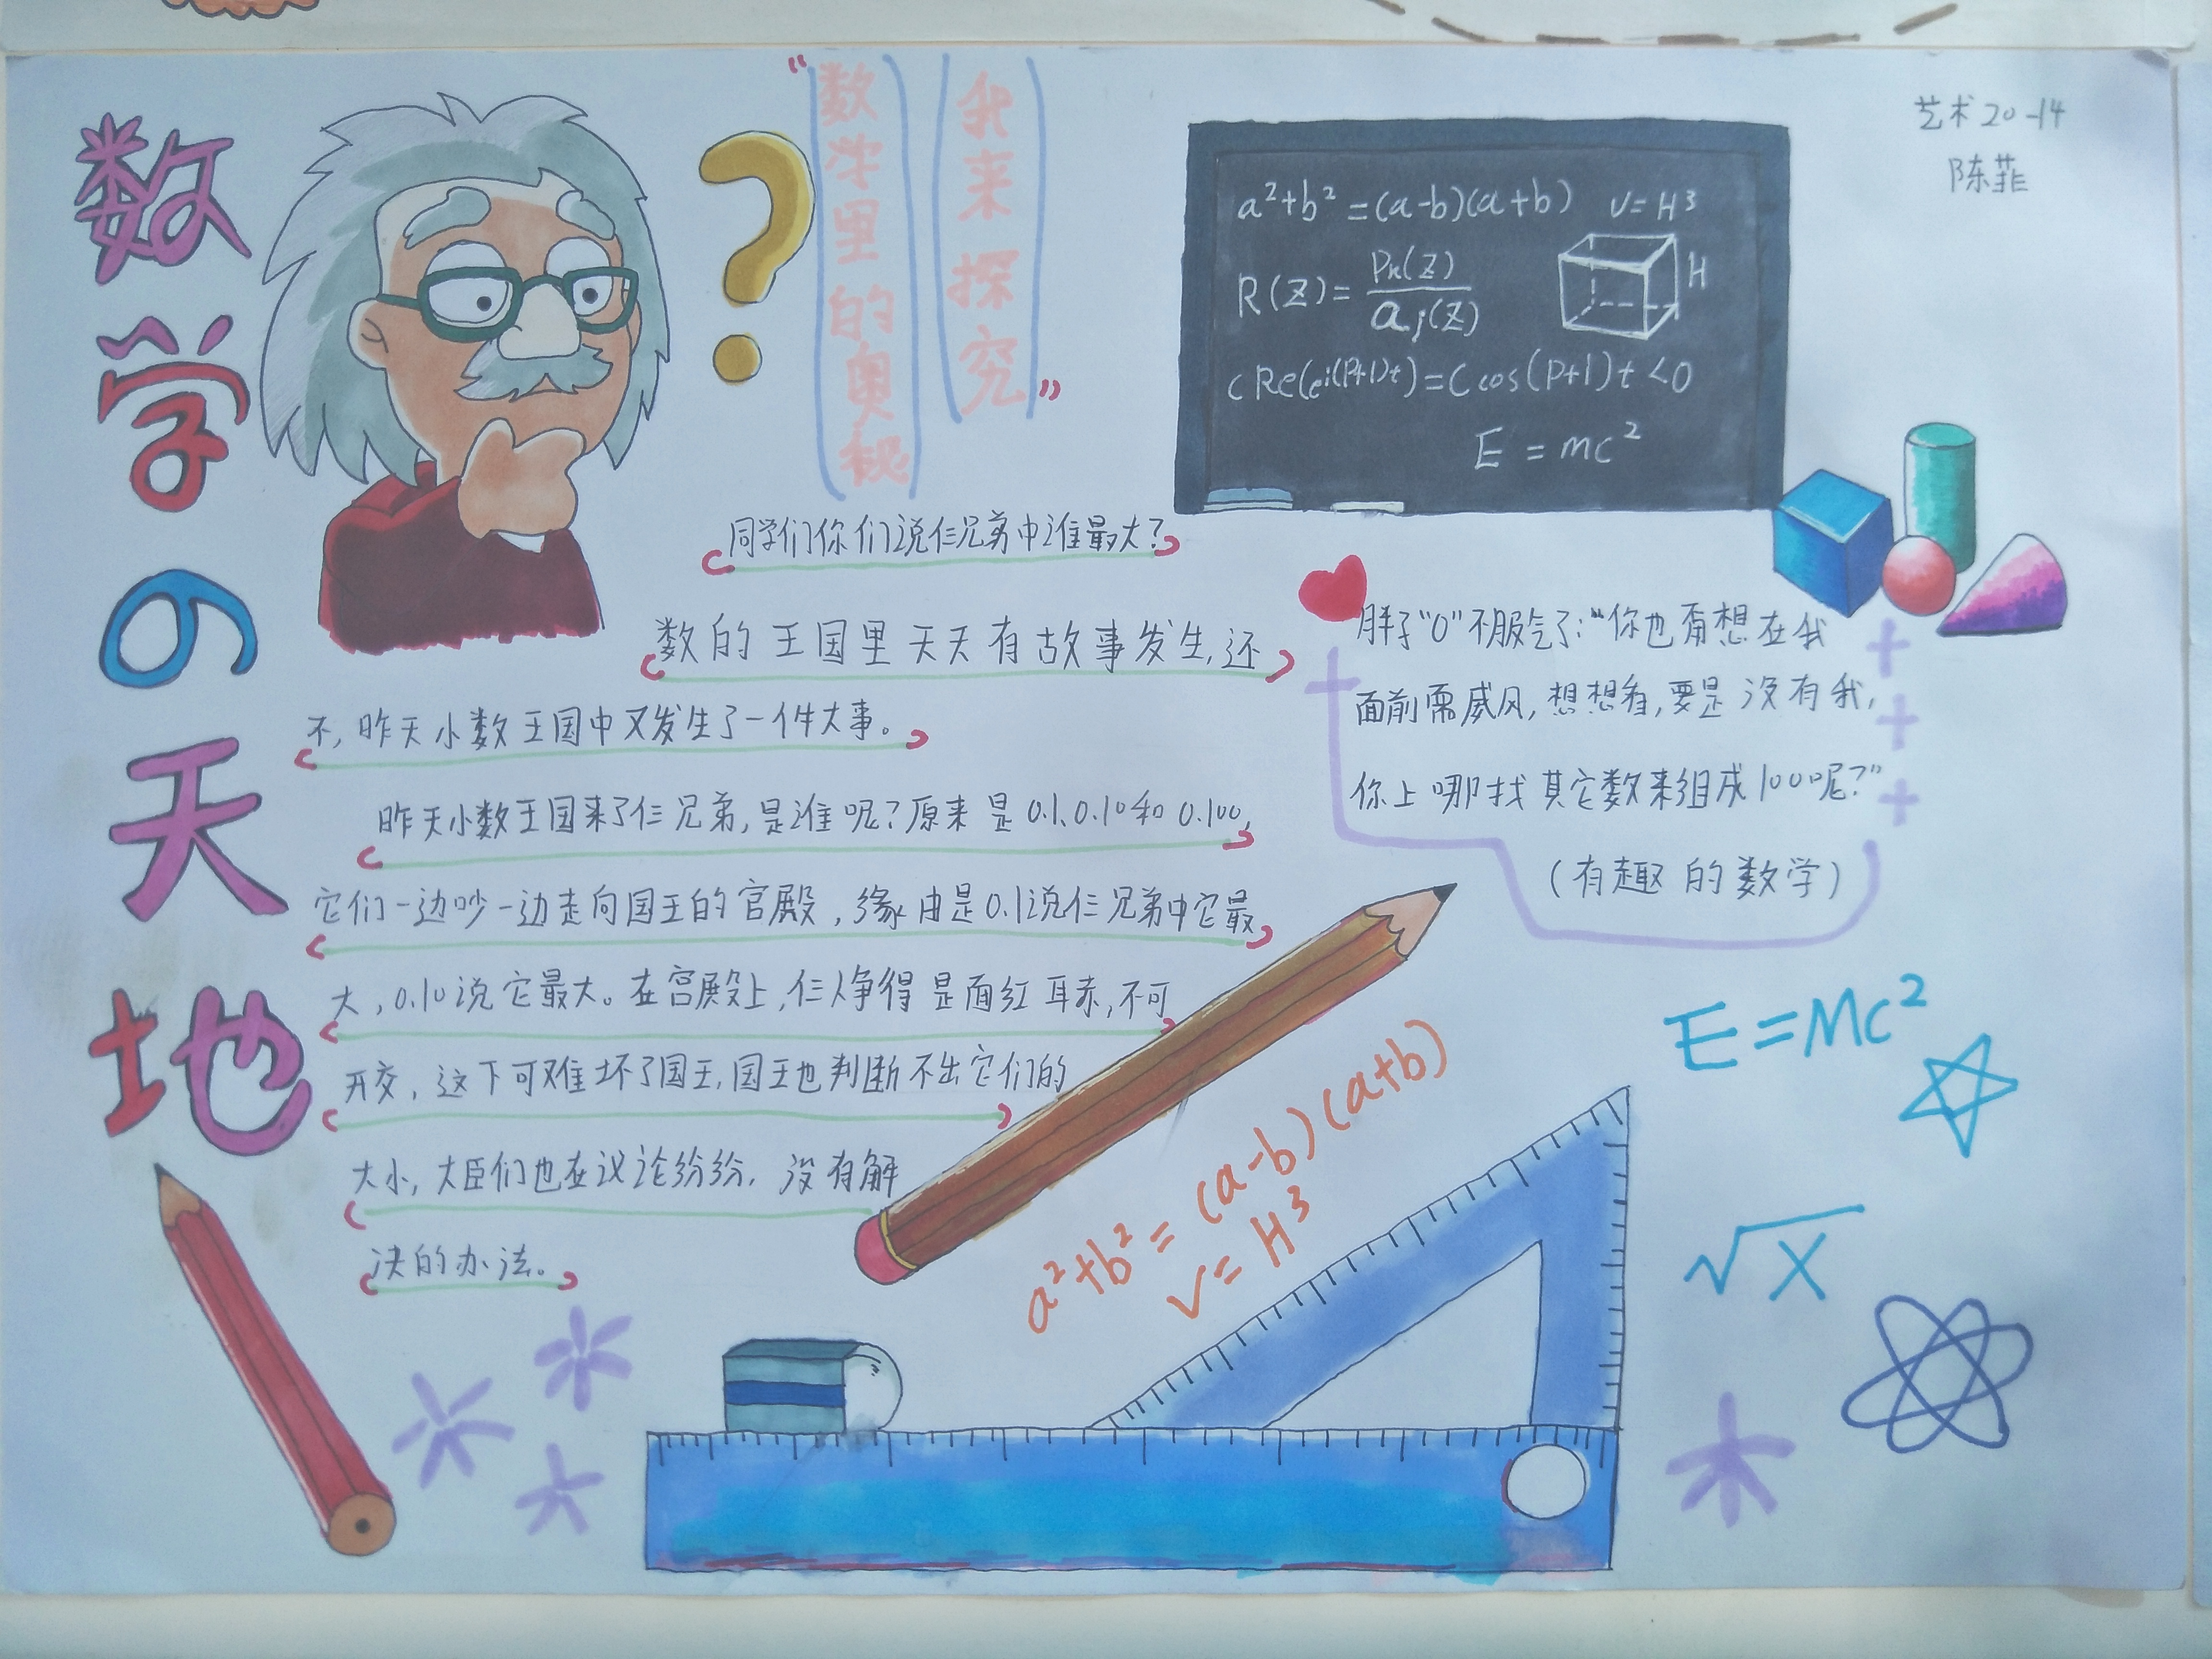 数学の天地
“数学里的奥秘
我来探究”
艺术20-14
陈菲
a²+b²=(a-b)(a+b) V=H³
R(Z)=Pn(Z)/aj(Z)
H
cRe(ei(P+1)t)=Ccos(P+1)t<0
E=mc²
同学们你们说仨兄弟中谁最大?
数的王国里天天有故事发生,还
不,昨天小数王国中又发生了一件大事。
昨天小数王国来了仨兄弟,是谁呢?原来是0.1、0.10和0.100,
它们一边吵一边走向国王的宫殿,缘由是0.1说仨兄弟中它最
大,0.10说它最大。在宫殿上,仨人争得是面红耳赤,不可
开交,这下可难坏了国王,国王也判断不出它们的
大小,大臣们也在议论纷纷,没有解
决的办法。
胖子“0”不服气了:“你也甭想在我
面前耍威风,想想看,要是没有我,
你上哪找其它数来组成100呢?”
(有趣的数学)
a²+b²=(a-b)(a+b)
V=H³
E=Mc²
√X